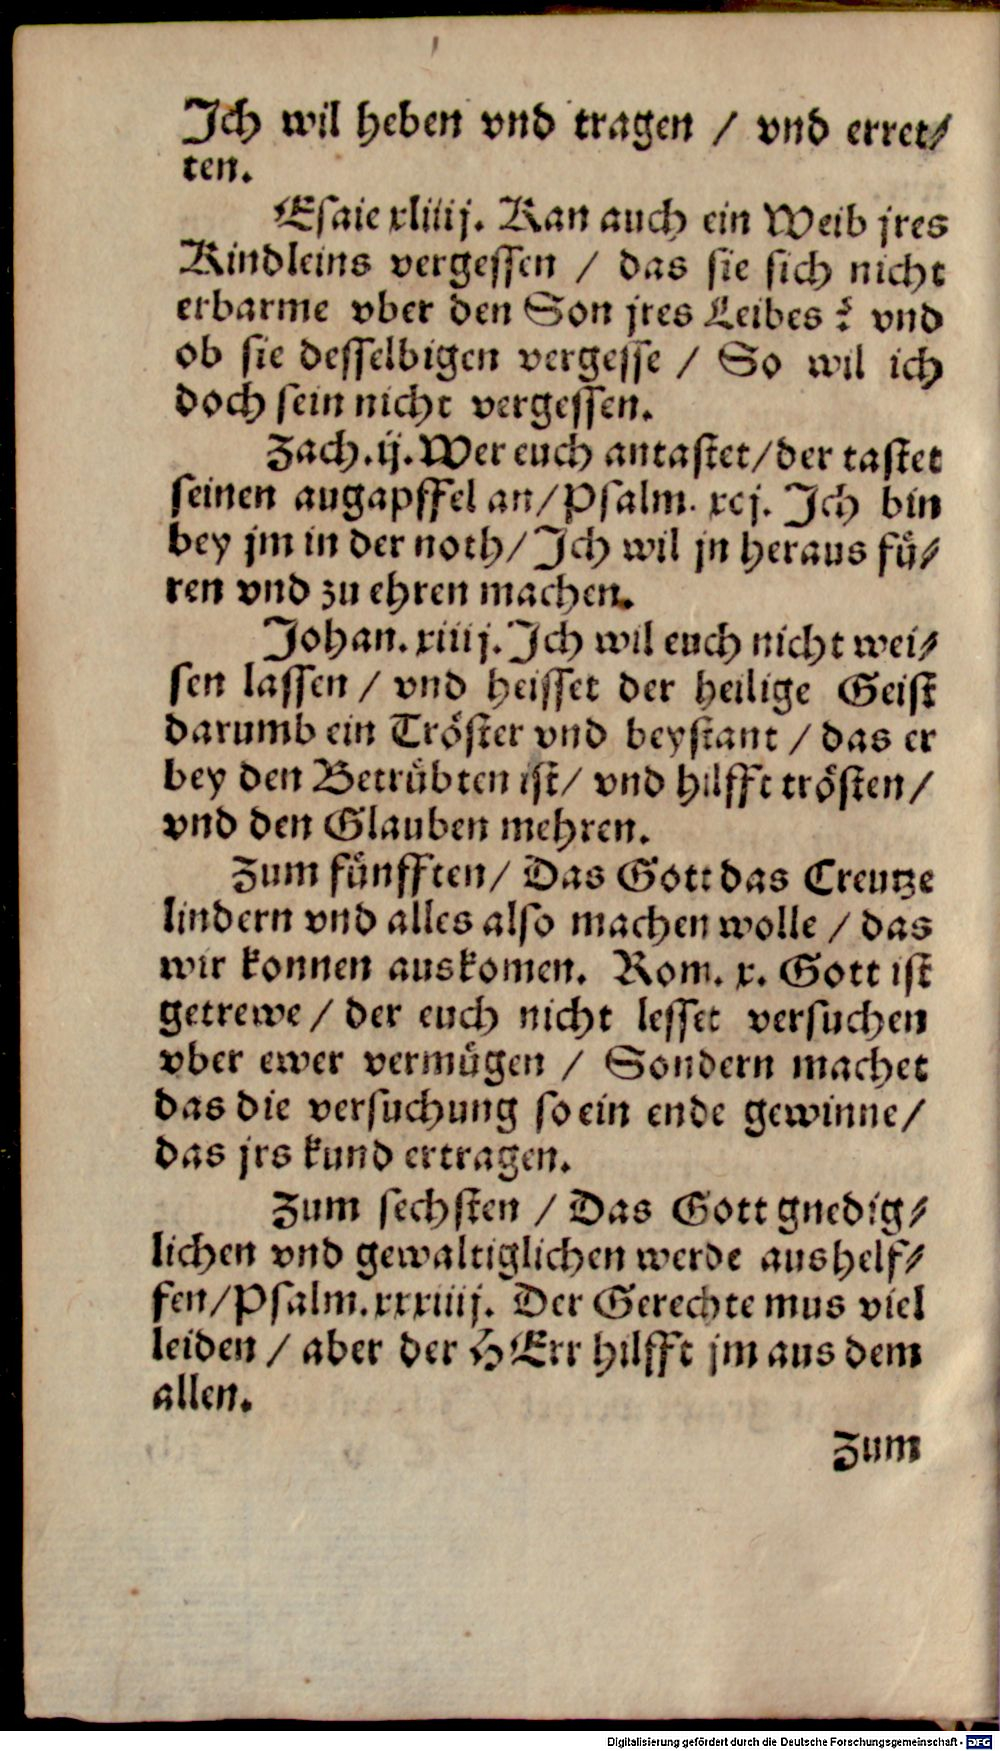 Ich wil heben vnd tragen / vnd erret⸗
ten.
Esaie xliiij. Kan auch ein Weib jres
Kindleins vergessen / das sie sich nicht
erbarme vber den Son jres Leibes ? vnd
ob sie desselbigen vergesse / So wil ich
doch sein nicht vergessen.
Zach. ij. Wer euch antastet / der tastet
seinen augapffel an / Psalm. xcj. Ich bin
bey jm in der noth / Ich wil jn heraus fuͤ⸗
ren vnd zu ehren machen.
Johan. xiiij. Ich wil euch nicht wei⸗
sen lassen / vnd heisset der heilige Geist
darumb ein Troͤster vnd beystant / das er
bey den Betruͤbten ist / vnd hilfft troͤsten /
vnd den Glauben mehren.
Zum fuͤnfften / Das Gott das Creutze
lindern vnd alles also machen wolle / das
wir konnen auskomen. Rom. x. Gott ist
getrewe / der euch nicht lesset versuchen
vber ewer vermuͤgen / Sondern machet
das die versuchung so ein ende gewinne /
das jrs kund ertragen.
Zum sechsten / Das Gott gnedig⸗
lichen vnd gewaltiglichen werde aushelf⸗
fen / Psalm. xxxiiij. Der Gerechte mus viel
leiden / aber der HErr hilfft jm aus dem
allen.
Zum
Digitalisierung gefördert durch die Deutsche Forschungsgemeinschaft - DFG